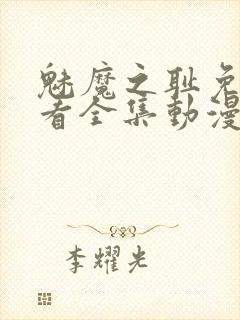 魅魔之耻免
者全集動漫
李耀光